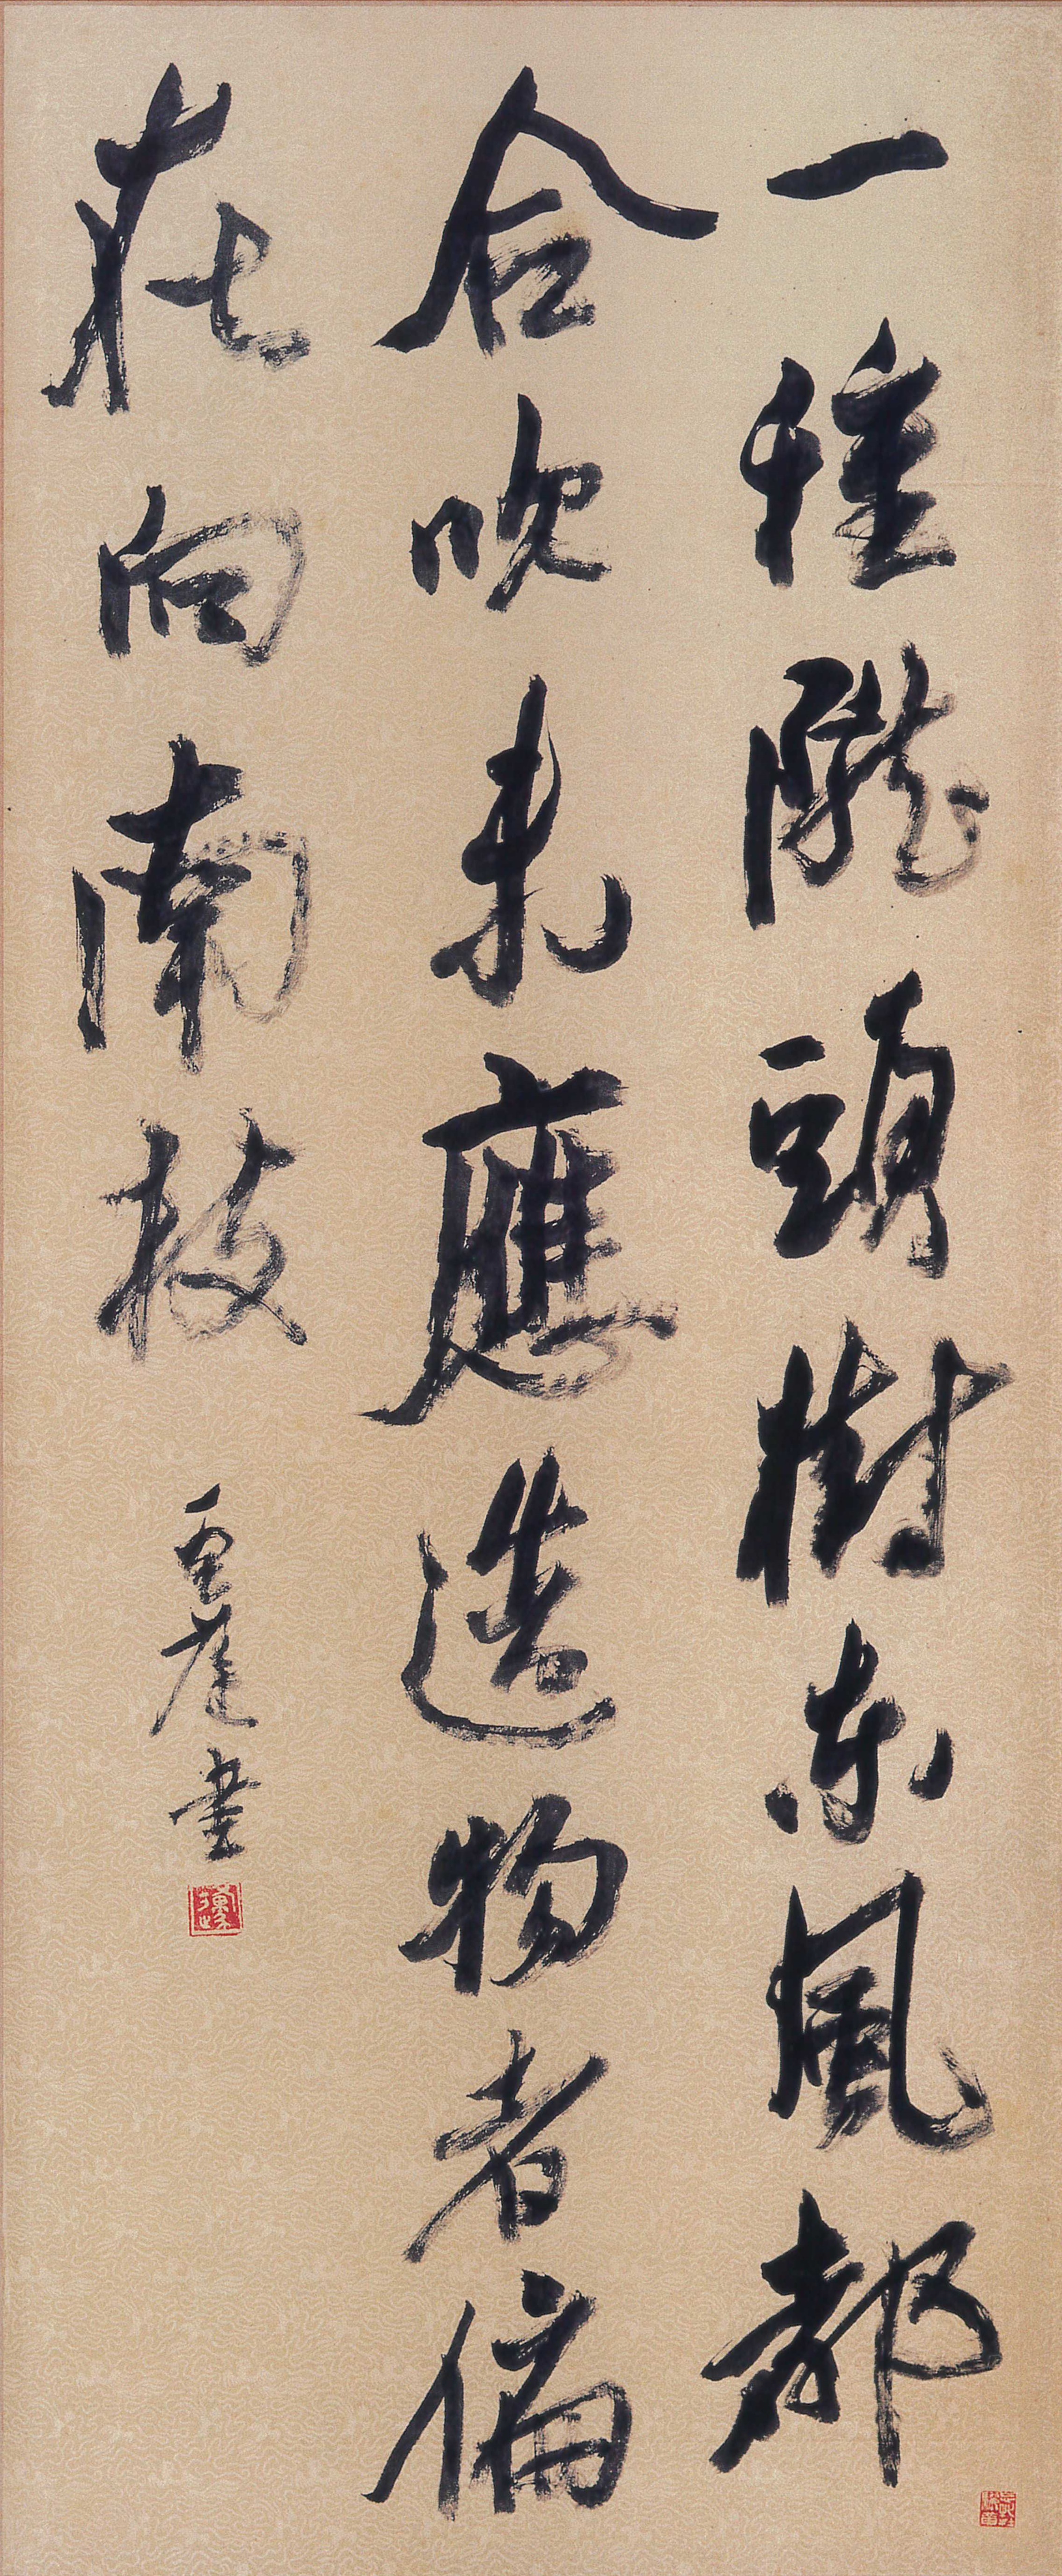 一種隴頭樹東風都
合吹未應造物者偏
在向南枝
書